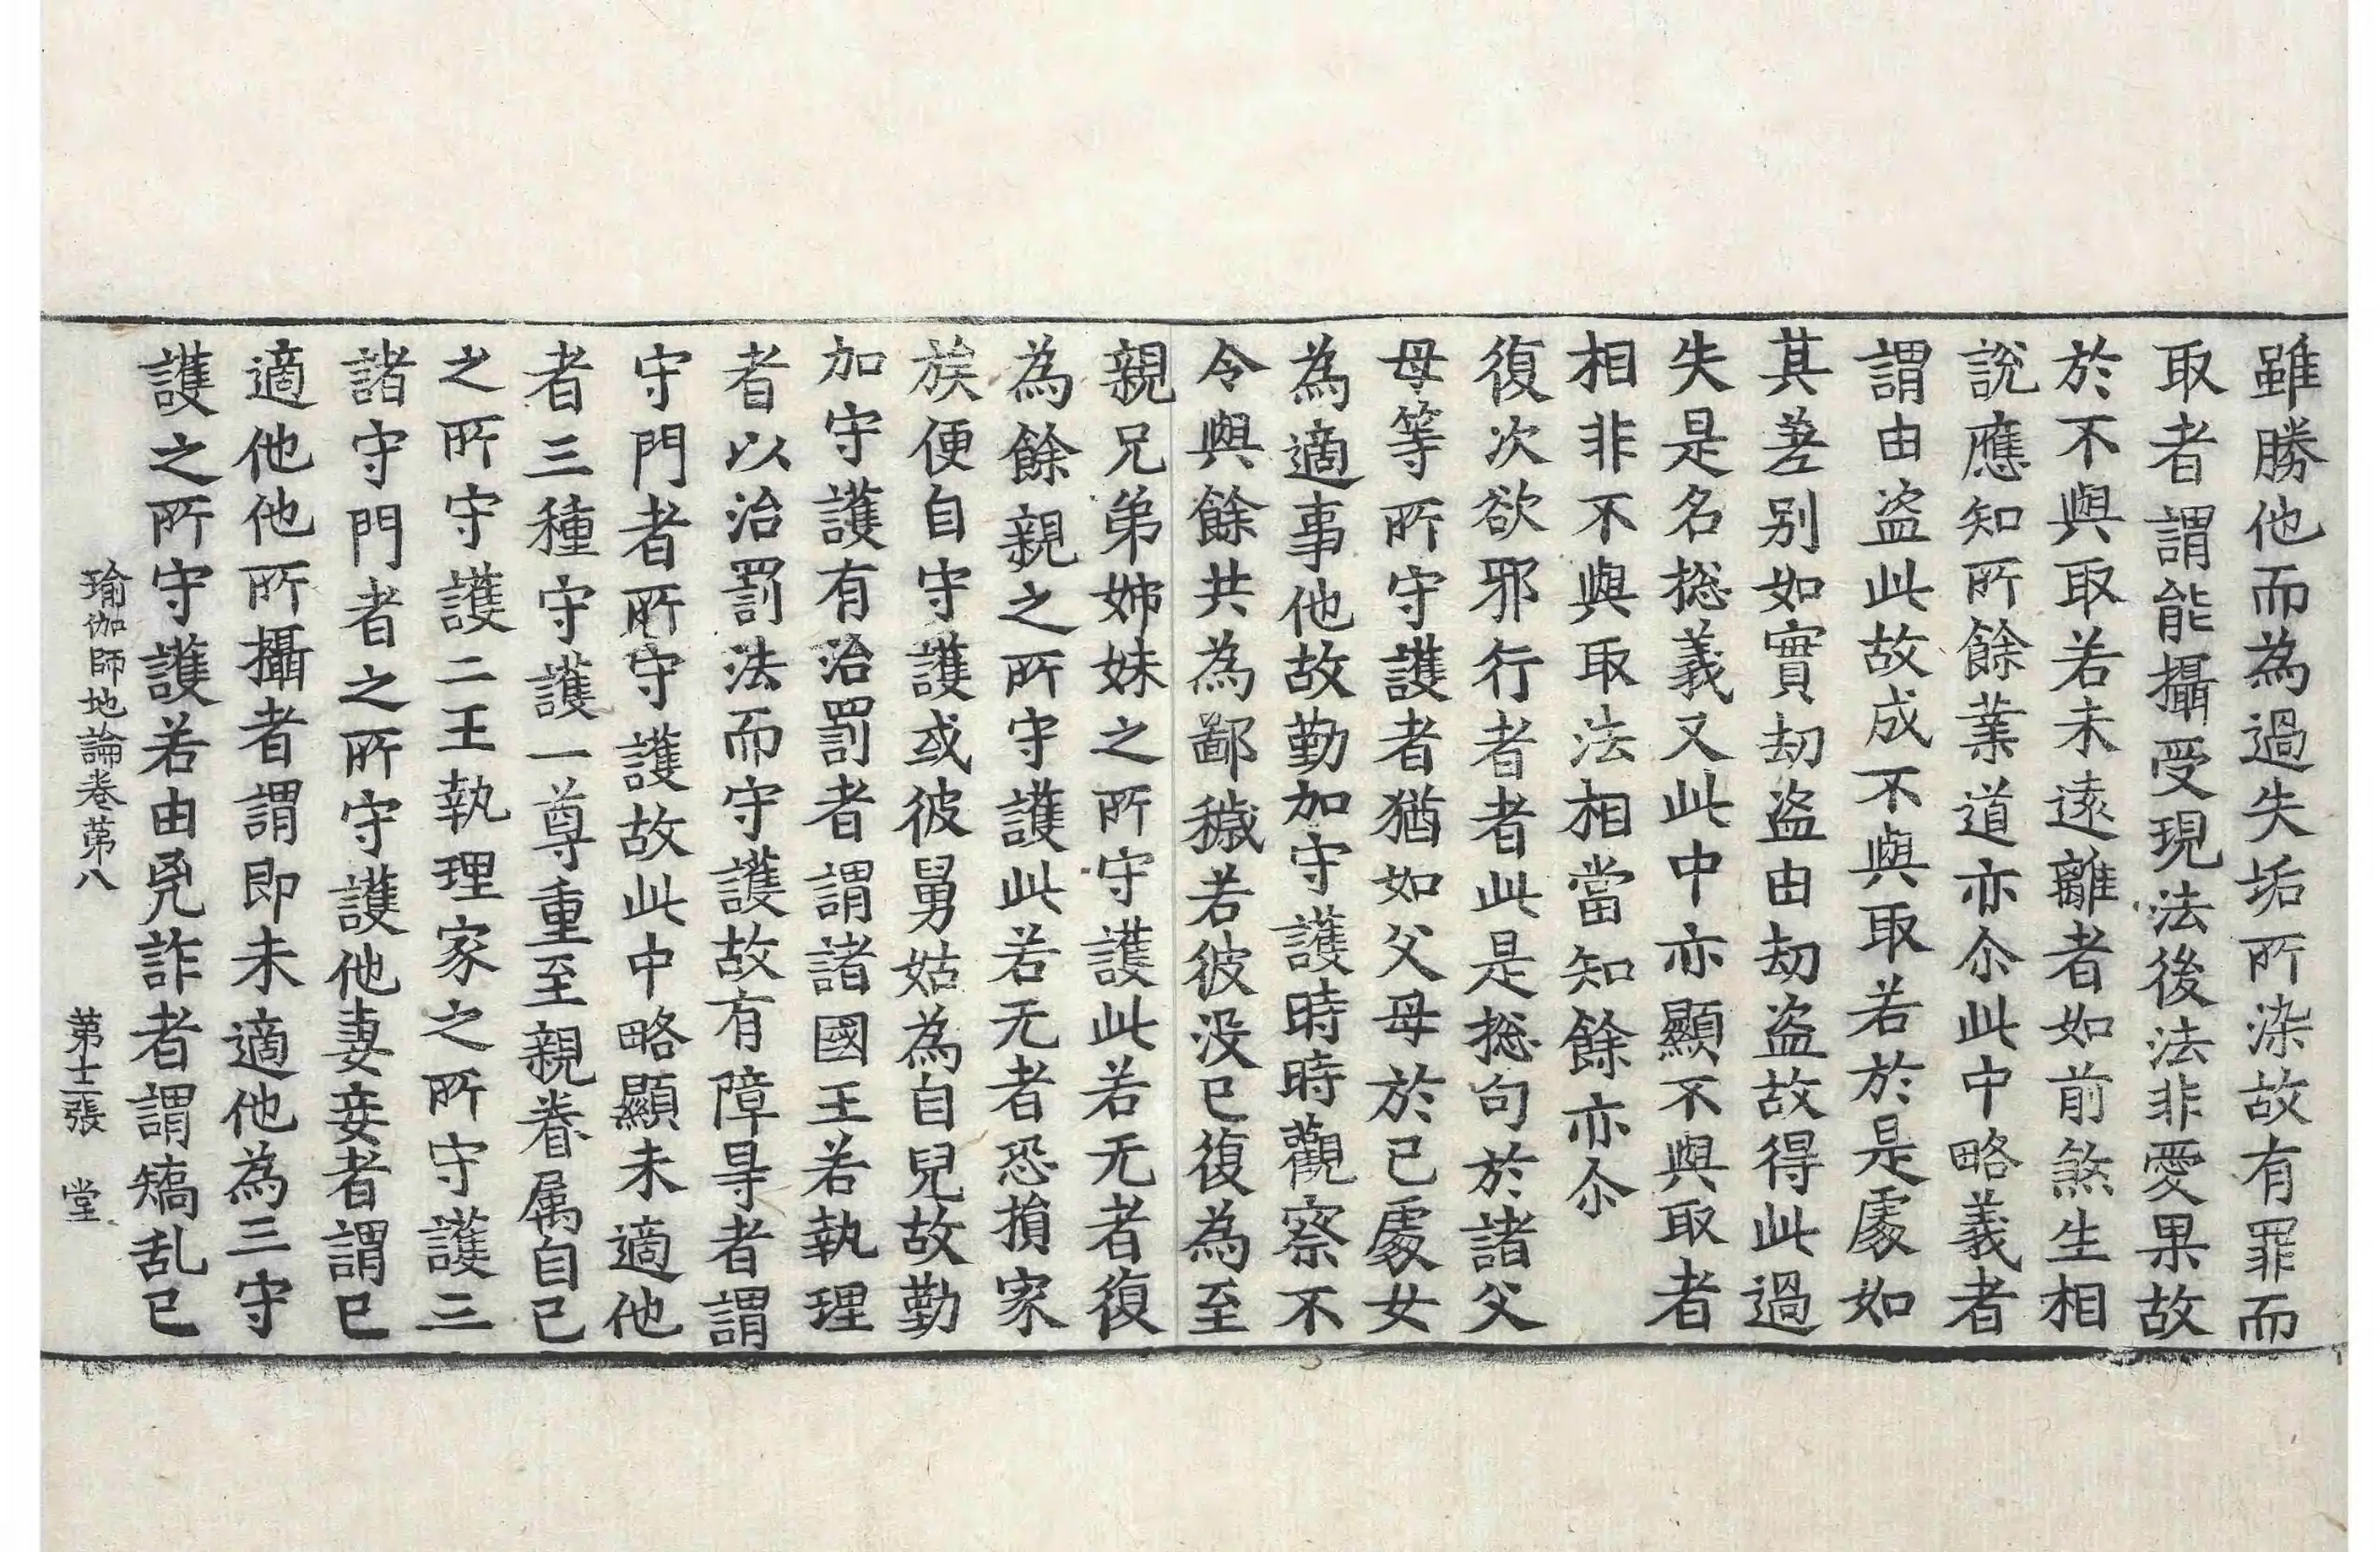 雖勝他而為過失垢所染故有罪而
取者謂能攝受現法後法非愛果故
於不與取若未遠離者如前煞生相
說應知所餘業道亦尒此中略義者
謂由盜此故成不與取若於是處如
其差别如實劫盜由劫盜故得此過
失是名捴義又此中亦顯不與取者
相非不與取法相當知餘亦尒
復次欲邪行者者此是捴句於諸父
母等所守護者猶如父母於己處女
為適事他故勤加守護時時觀察不
令與餘共為鄙穢若彼没已復為至
親兄弟姊妹之所守護此若无者復
為餘親之所守護此若无者恐損家
族便自守護或彼舅姑為自兒故勤
加守護有治罰者謂諸國王若執理
者以治罰法而守護故有障㝵者謂
守門者所守護故此中略顯未適他
者三種守護一尊重至親眷属自己
之所守護二王執理家之所守護三
諸守門者之所守護他妻妾者謂已
適他他所攝者謂即未適他為三守
護之所守護若由凶詐者謂矯乱已
瑜伽師地論卷第八　第十三張　堂